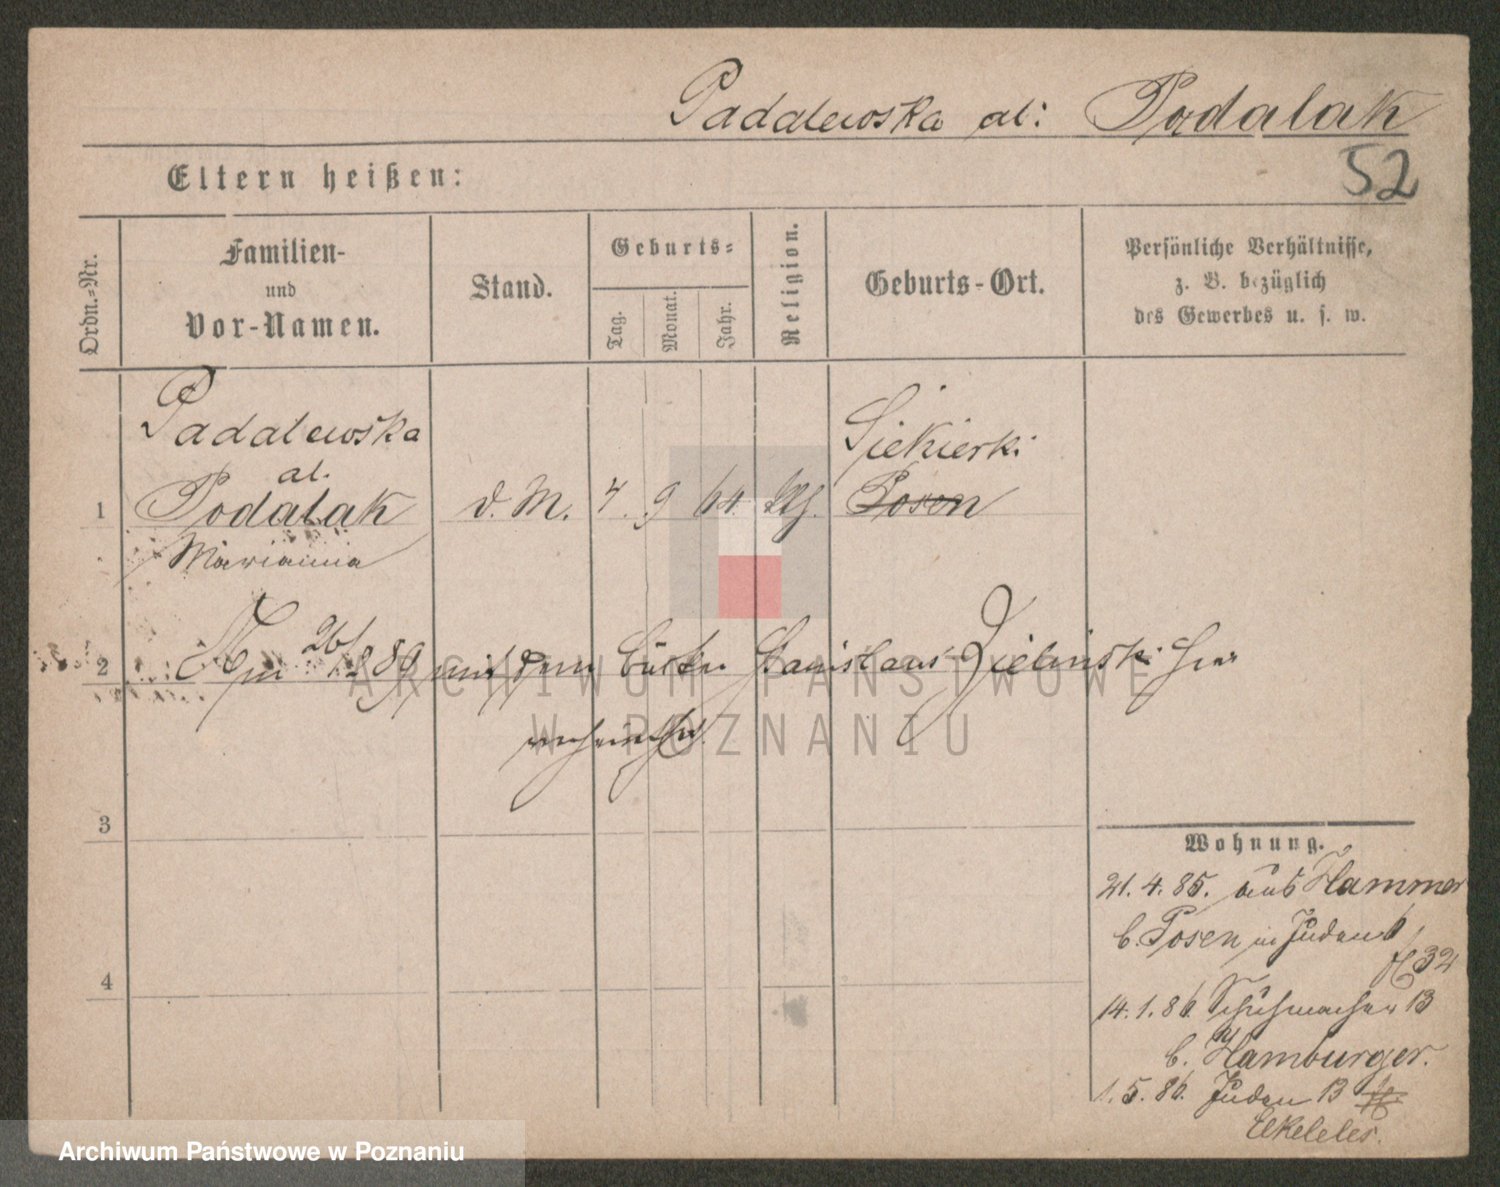 Padalewska al: Podalak
52
Eltern heißen:
Ordn.-Nr.
Familien-
und
Vor-Namen.
Stand.
Geburts-
Tag.
Monat.
Jahr.
Religion.
Geburts-Ort.
Persönliche Verhältnisse,
z. B. bezüglich
des Gewerbes u. s. w.
Padalewska
al.
1 Podalak d. M. 4 9 64 Posen
Siekierki
Marianna
2 26/ 89 mit dem Stanislaus Zielinski hier
3
4
Wohnung.
21. 4. 85. aus Hammer
b. Posen in Juden
32
14. 1. 86. Schuhmacher 13
b. Hamburger.
1. 5. 86. Juden 13
Elkeles.
ARCHIWUM PAŃSTWOWE
W POZNANIU
Archiwum Państwowe w Poznaniu